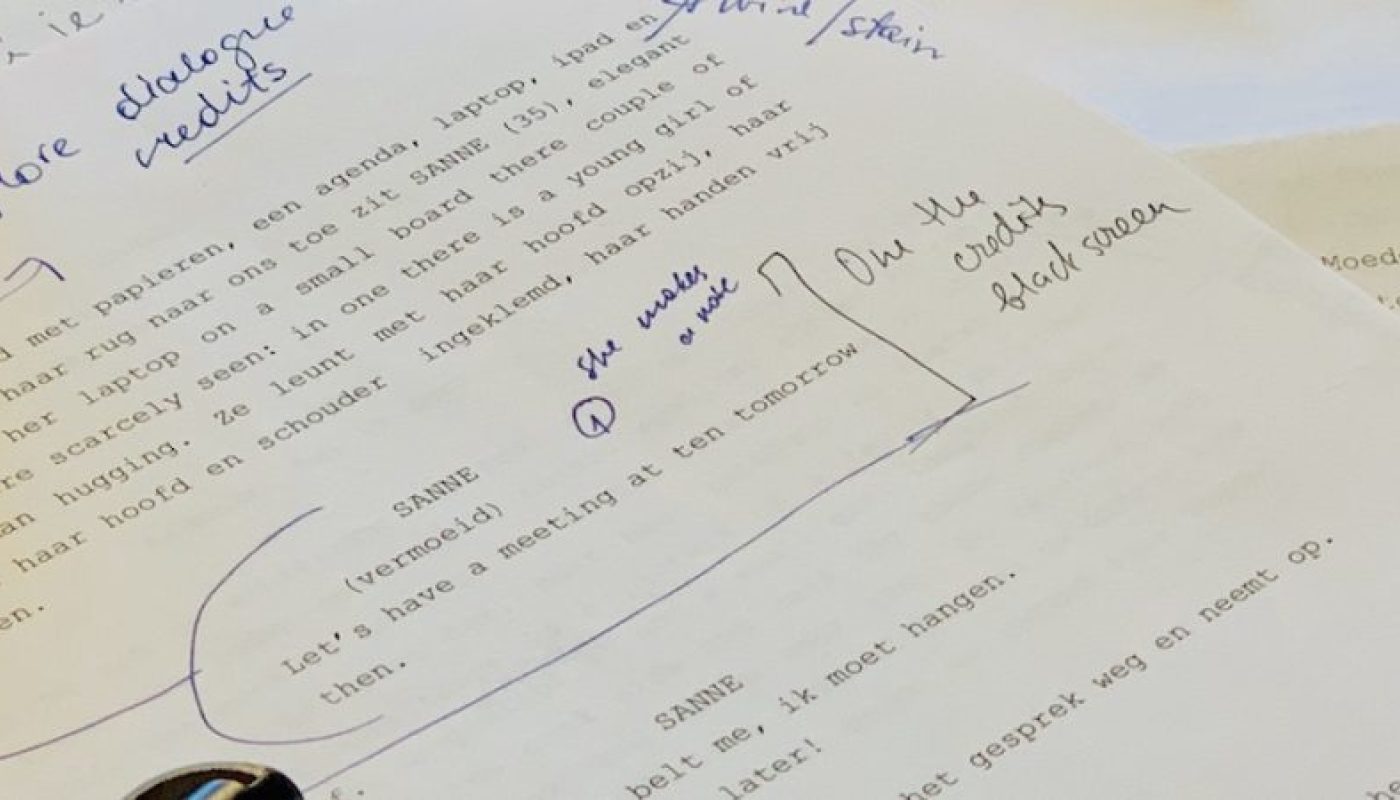 dialogue
credits
wine/stain
met papieren, een agenda, laptop, ipad en
haar rug naar ons toe zit SANNE (35), elegant
her laptop on a small board there couple of
scarcely seen: in one there is a young girl of
hugging. Ze leunt met haar hoofd opzij, haar
haar hoofd en schouder ingeklemd, haar handen vrij
she makes
a note
1
On the
credits
black screen
SANNE
(vermoeid)
Let's have a meeting at ten tomorrow
then.
SANNE
belt me, ik moet hangen.
later!
het gesprek weg en neemt op.